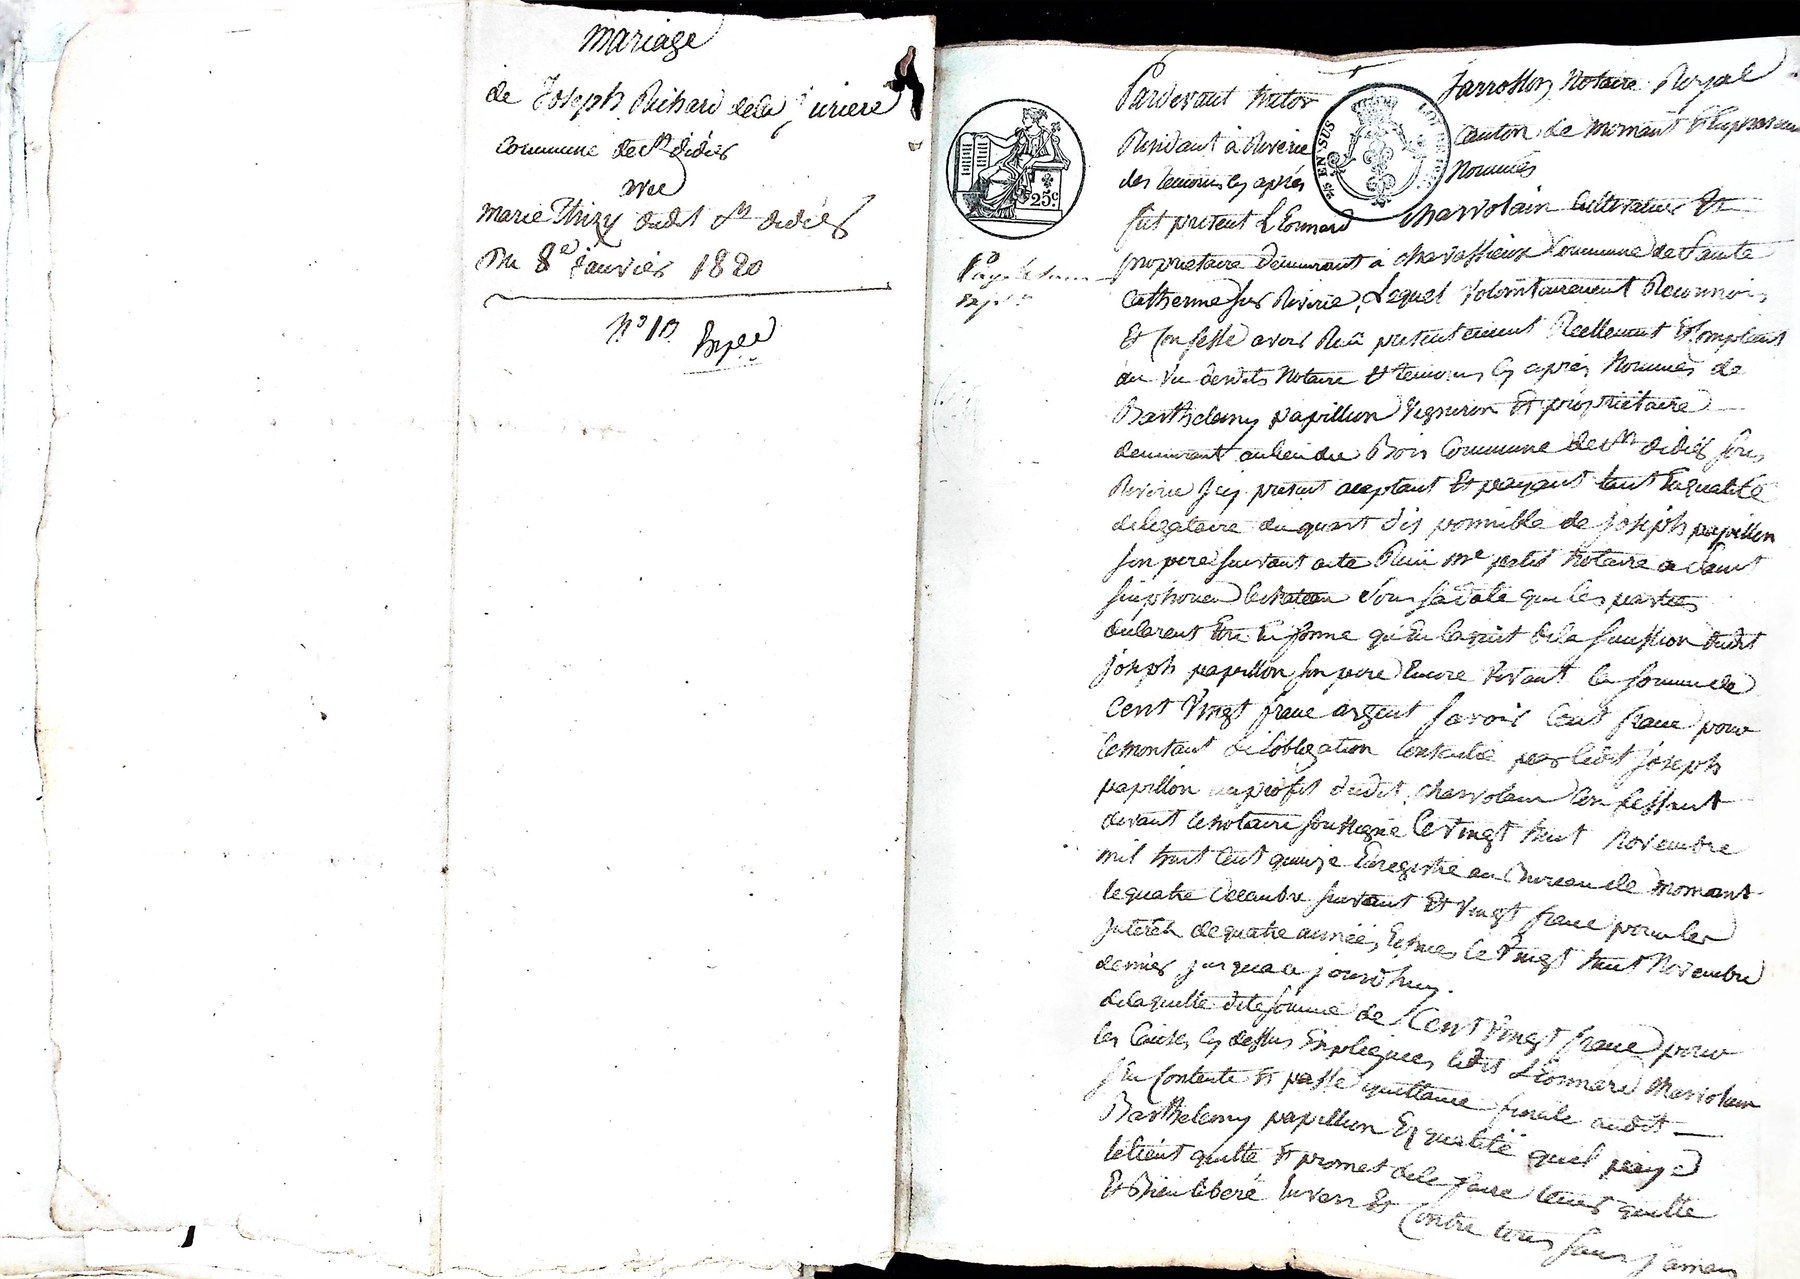 Mariage
de Joseph Richard de la Juriere
Commune de St didier
avec
marie Thizy dudit St didier
Du 8e Janvier 1820
N° 10 Expée
Pardevant victor Jarrosson, Notaire Royal
Résidant à Riverie Canton de mornant & En presence
des temoins cy après Nommés
fut présent Léonnard Charvolain Cultivateur Et
25c
EN SUS
proprietaire demeurant à chavassieux Commune de Sainte
1°
Catherine sur Riverie, Lequel volontairement Reconnois
Et Confesse avoir Reçu présentement Réellement Et Comptant
au vu desdits Notaire Et temoins cy après Nommés de
Barthelemy papillion vigneron Et propriétaire
demeurant au lieu du Bois Commune de St didier sous
Riverie Icy présent aceptant Et payant tant En qualité
de légataire du quart disponnible de joseph papillon
son pere suivant acte Reçu Me notaire a Saint
simphorien le chateau sous sa date que les parties
déclarent Etre En forme qu'En l'aquit de la succession dudit
joseph papillon son pere Encore vivant la somme de
Cent vingt franc argent savoir Cent franc pour
le montant de l'obligation Consentie par ledit joseph
papillon au profit dudit Charvolain Confessant
devant le notaire soussigné le vingt huit Novembre
mil huit Cent quinze Enregistré au Bureau de mornant
le quatre decembre suivant Et vingt franc pour les
Interêts de quatre années, Echues le vingt huit Novembre
dernier jusqu'a ce jourd'huy.
de laquelle dite somme de Cent vingt franc pour
les Causes cy dessus Expliquées ledit Léonnard Charvolain
s'En Contente Et passe quittance finale audit
Barthelemy papillion Es qualité quel paye
le tient quitte Et promet de le faire tenir quitte
Et Bien libéré Envers Et Contre tous sans jamais